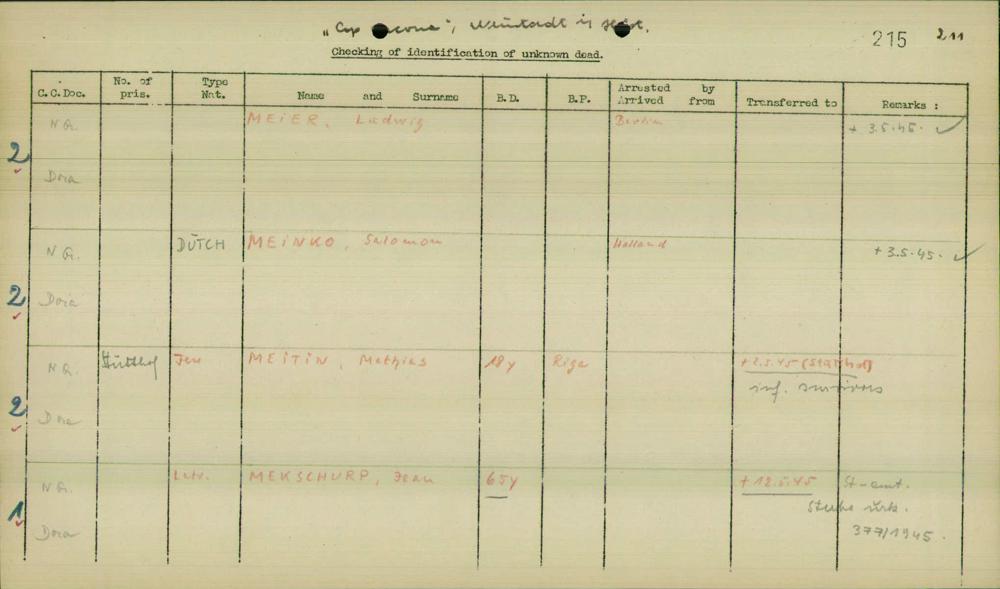 "Cap Arcona", Neustadt in Holst.
215 211
Checking of identification of unknown dead.
C.C.Doc. No. of pris. Type Nat. Name and Surname B.D. B.P. Arrested by Arrived from Transferred to Remarks :
MEIER, Ludwig Berlin + 3.5.45. ✓
2
Dora
DUTCH MEINKO, Salomon Holland + 3.5.45. ✓
2
Dora
Stutthof Jew MEITIN, Mathias 18y Riga + 2.5.45 (Stutthof)
inf. survivors
2
Dora
Latv. MEKSCHURP, Jean 65y + 12.5.45 St-amt.
Sterbe urk.
1
Dora 377/1945.